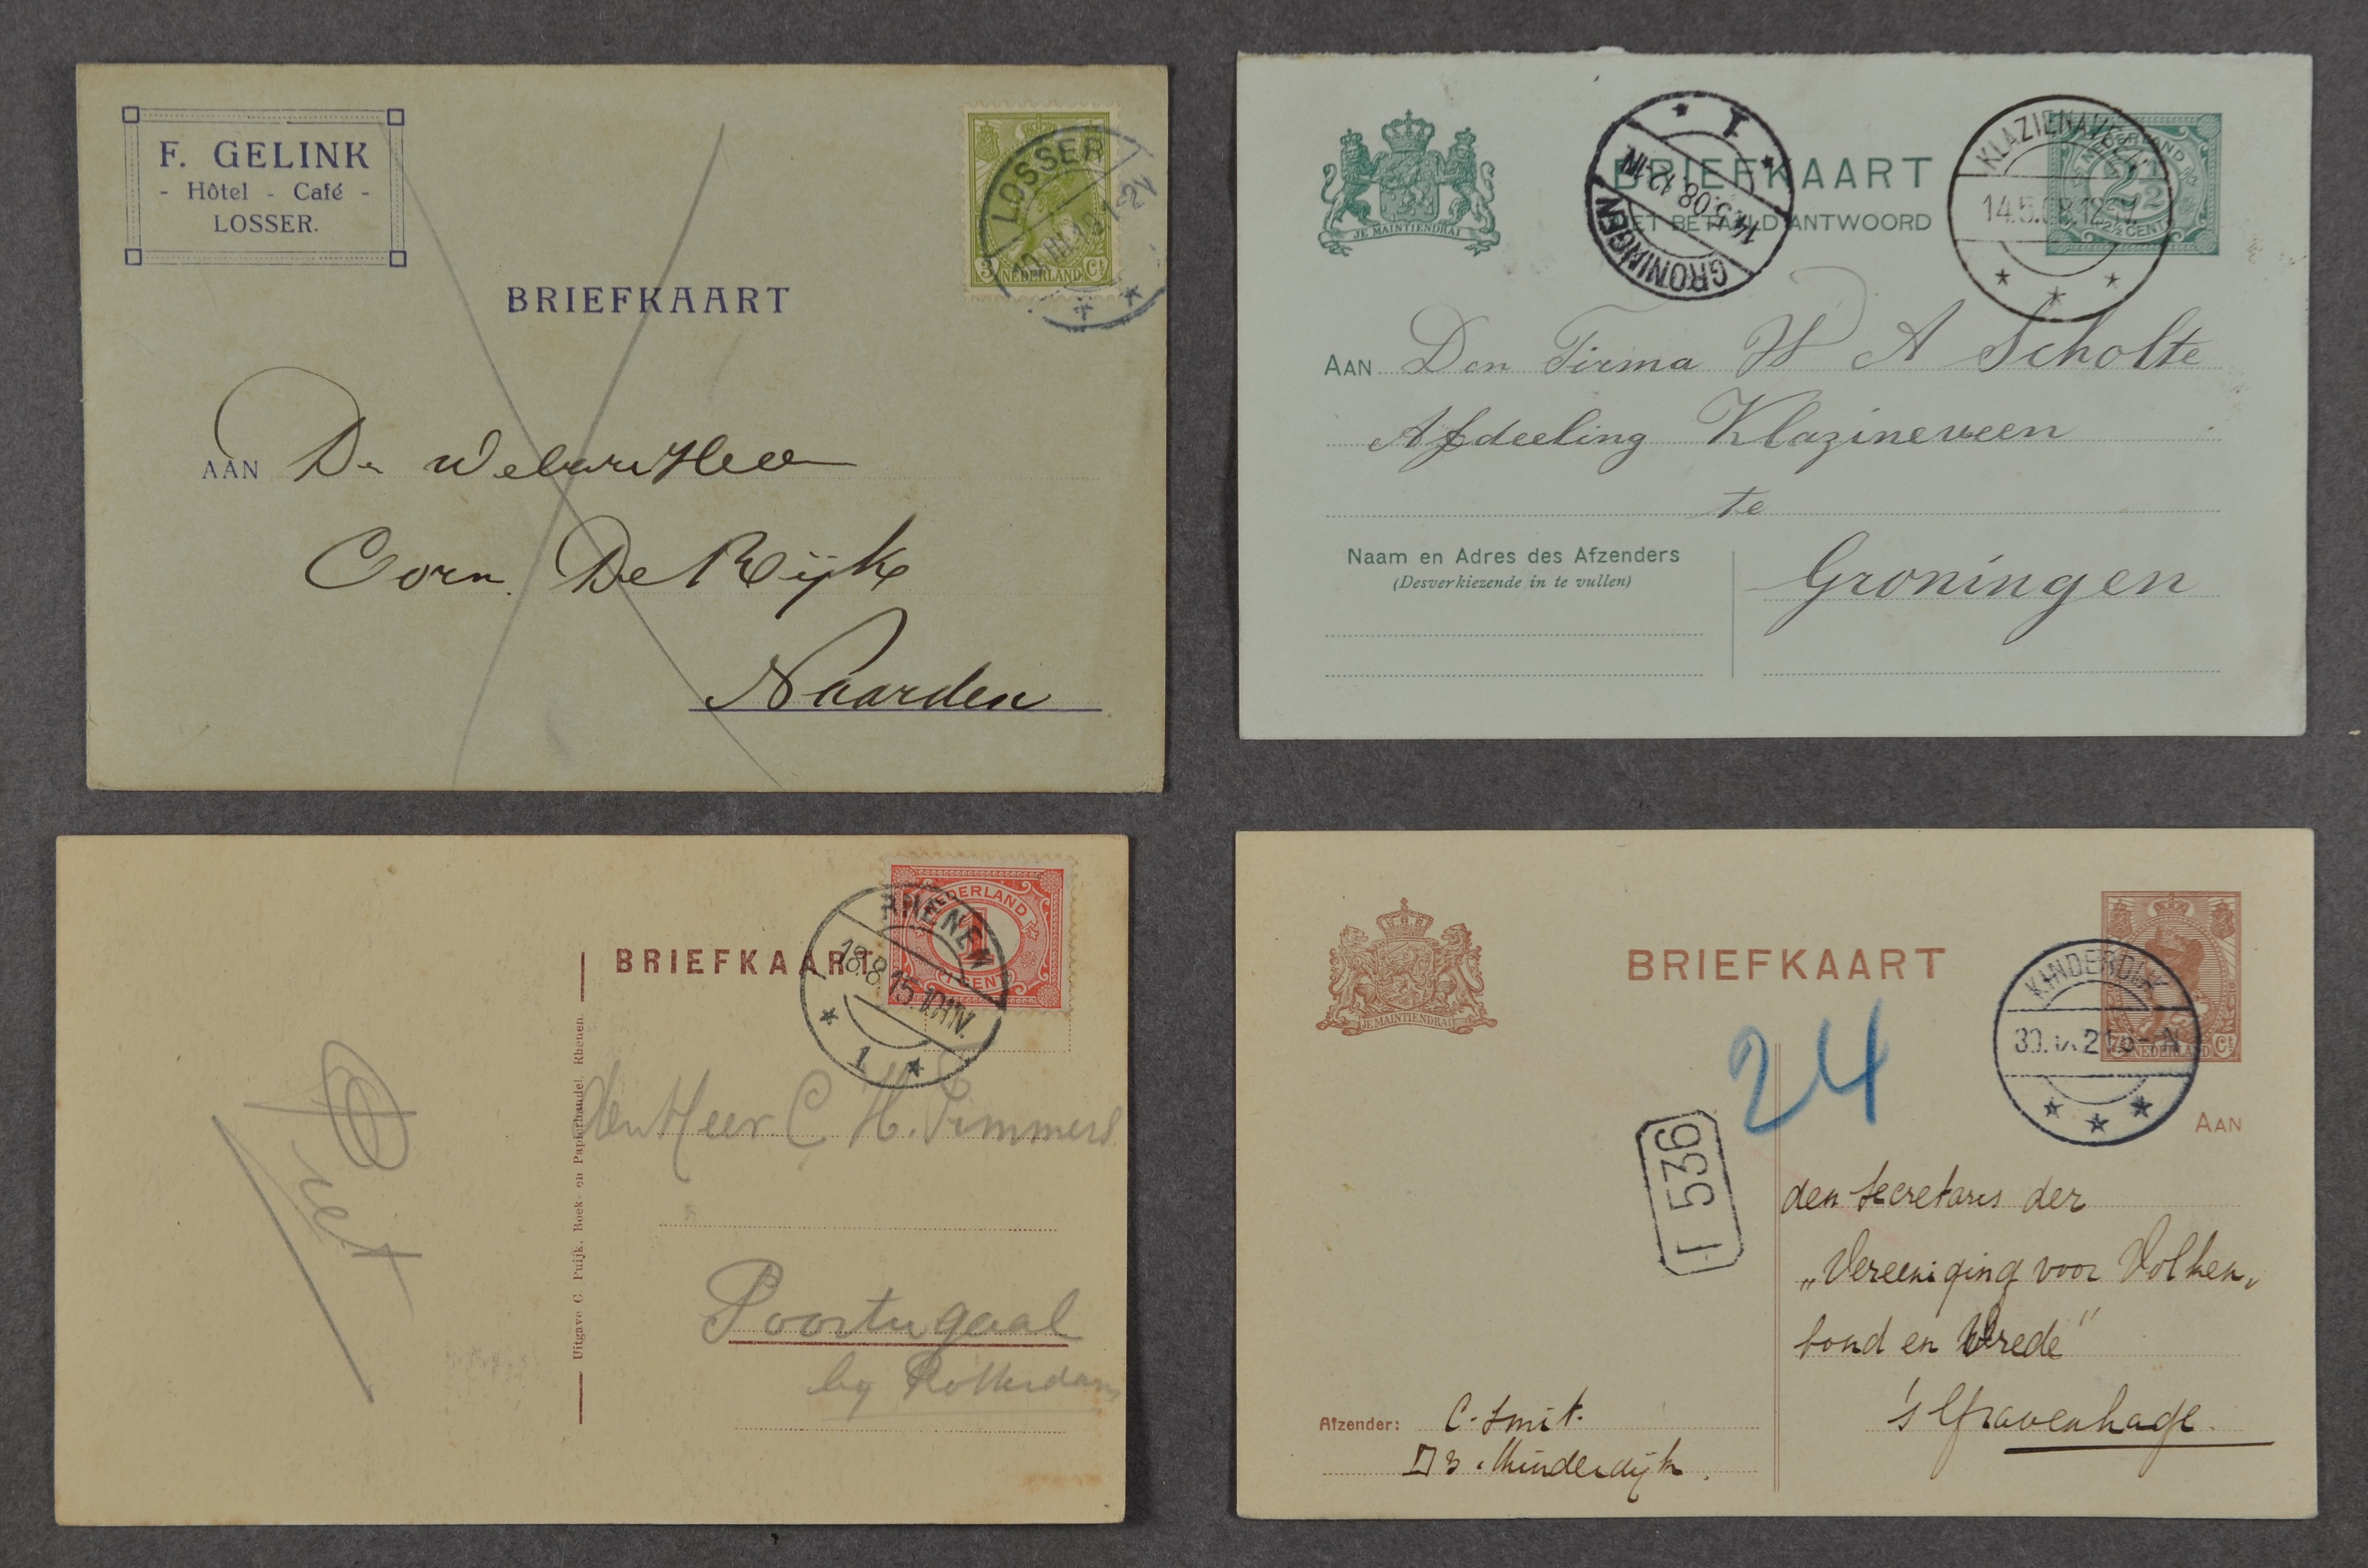 F. GELINK
- Hôtel - Café -
LOSSER.
LOSSER
3 NEDERLAND Ct
BRIEFKAART
AAN De
Corn. De Rijk
Naarden
JE MAINTIENDRAI
BRIEFKAART
MET BETAALD ANTWOORD
GRONINGEN
14.5.08 12-1N
1
KLAZIENAVEEN
14.5.08.12
NEDERLAND
2½
2½ CENT
AAN Den Firma W A Scholte
Afdeeling Klazineveen
te
Groningen
Naam en Adres des Afzenders
(Desverkiezende in te vullen)
BRIEFKAART
NEDERLAND
1
CENT
RHENEN
18.8.15.10-11N.
1
Uitgave C. Puijk, Boek- en Papierhandel, Rhenen
Piet
den Heer C H. Timmers
Poortugaal
by Rotterdam
JE MAINTIENDRAI
BRIEFKAART
NEDERLAND Ct
KINDERDIJK
30.IX.2
24
I 536
AAN
den Secretaris der
„Vereeniging voor Volken„
bond en Vrede"
's Gravenhage.
Afzender: C. Smit.
3. Kinderdijk.